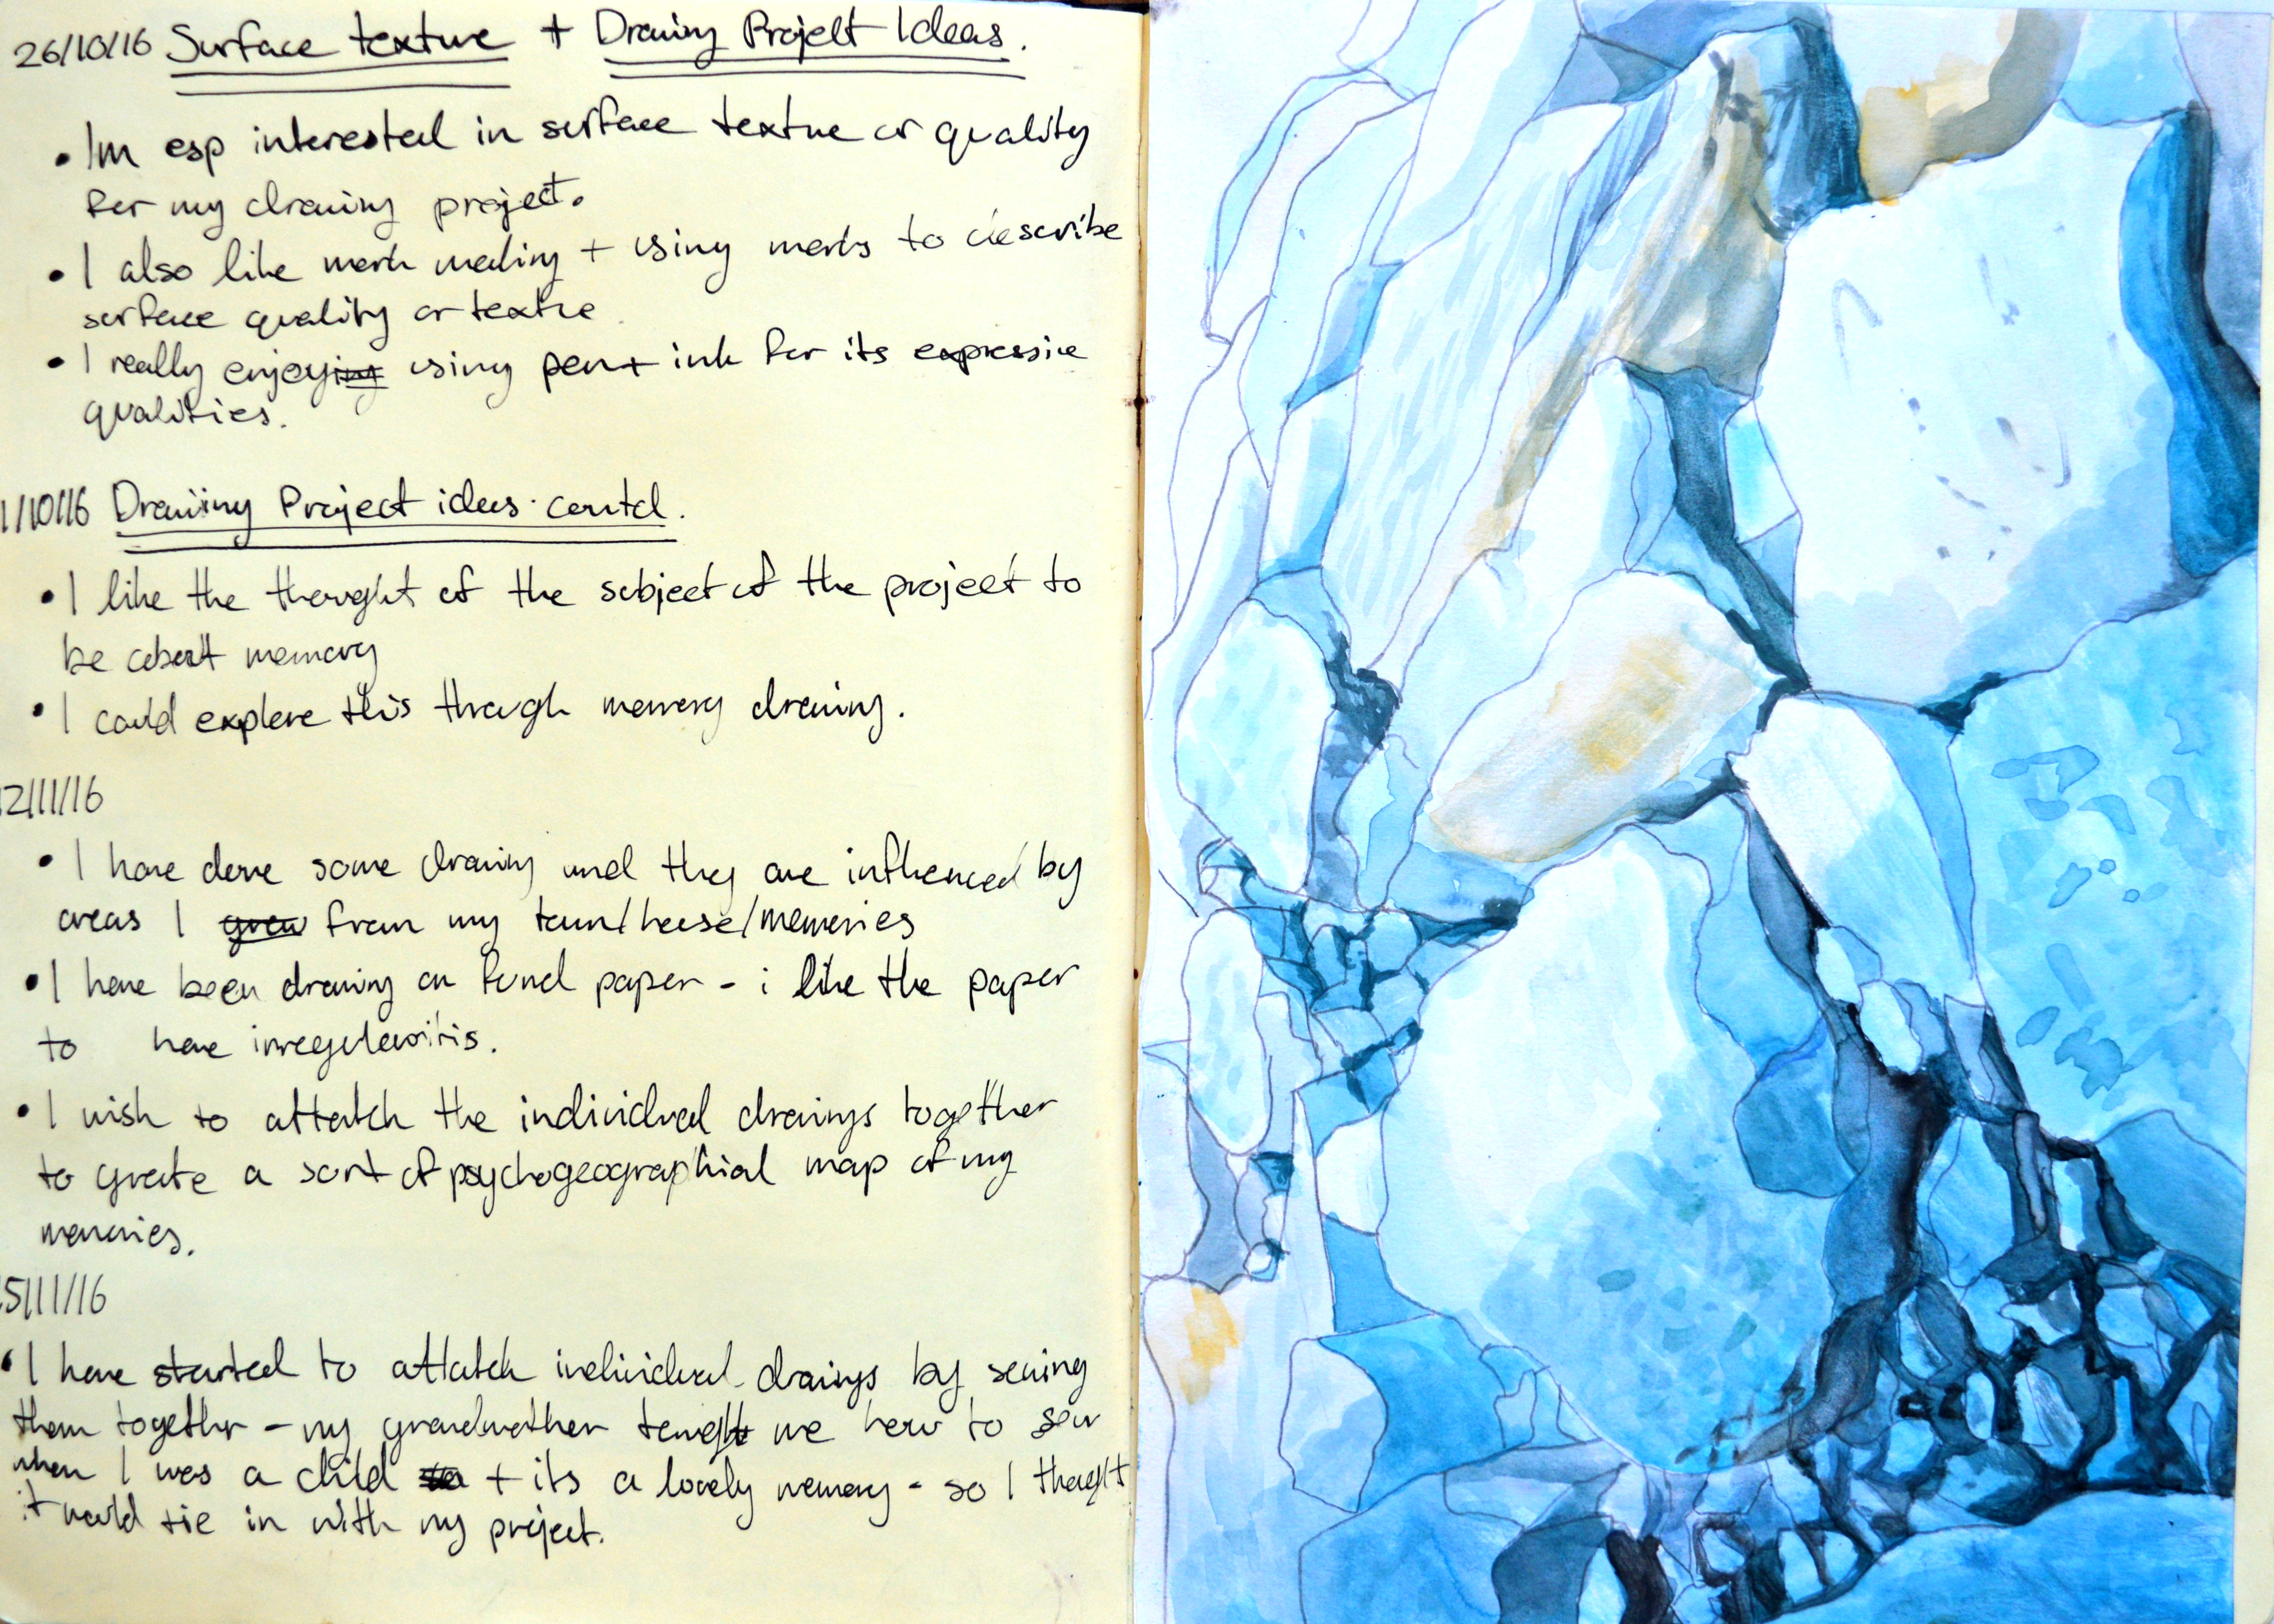 26/10/16 Surface texture + Drawing Project Ideas.
• Im esp interested in surface texture or quality
for my drawing project.
• I also like mark making + using marks to describe
surface quality or texture
• I really enjoying using pen + ink for its expressive
qualities.
1/10/16 Drawiing Project ideas contd.
• I like the thought of the subject of the project to
be about memory
• I could explore this through memory drawing.
2/11/16
• I have done some drawing and they are influenced by
areas I grew from my town/house/memories
• I have been drawing on found paper - i like the paper
to have irregularitis.
• I wish to attatch the individual drawings together
to create a sort of psychogeographical map of my
memories.
5/11/16
• I have started to attatch individual drawings by sewing
them together - my grandmother taught me how to sew
when I was a child + its a lovely memory - so I thought
it would tie in with my project.